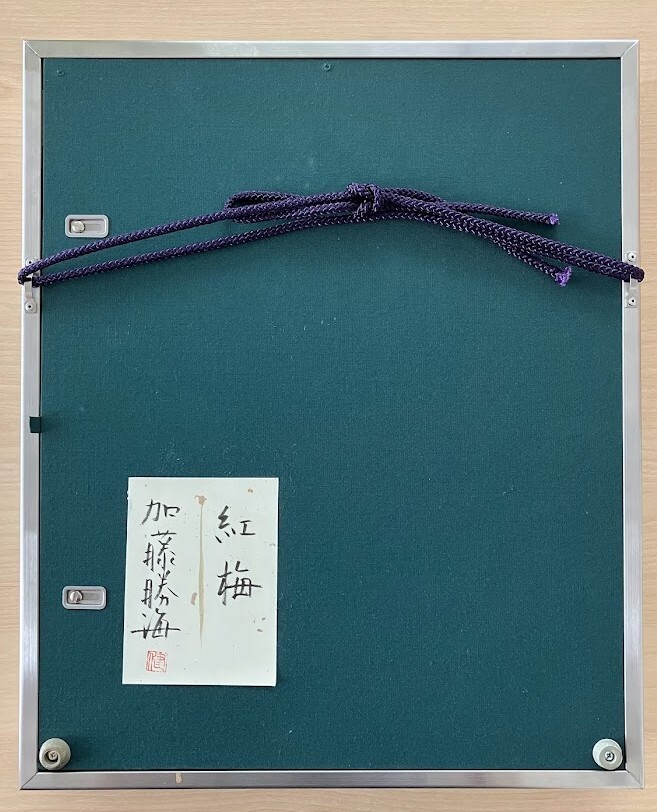 紅梅
加藤勝海